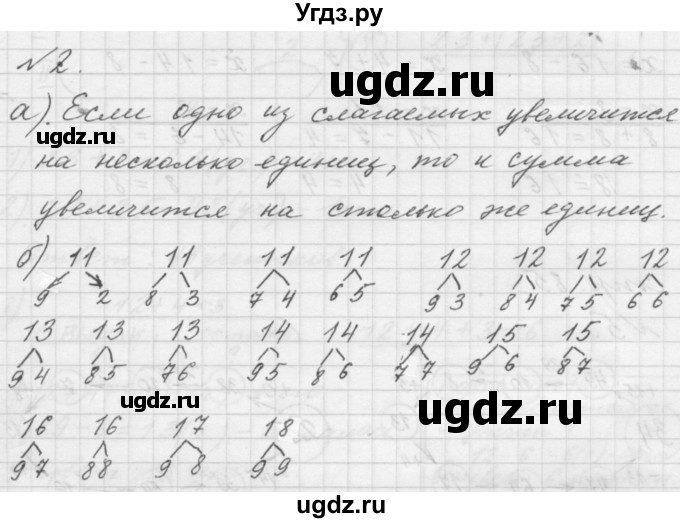 Угдз.ру
№2.
а). Если одно из слагаемых увеличится
на несколько единиц, то и сумма
увеличится на столько же единиц.
б) 11 11 11 11 12 12 12 12
9 2 8 3 7 4 6 5 9 3 8 4 7 5 6 6
13 13 13 14 14 14 15 15
9 4 8 5 7 6 9 5 8 6 7 7 9 6 8 7
16 16 17 18
9 7 8 8 9 8 9 9
ugdz.ru
ugdz.ru
ugdz.ru
ugdz.ru
ugdz.ru
ugdz.ru
Угдз.ру